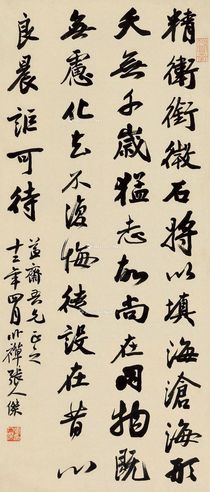 精衛銜微石將以填海滄海形
夭無千歲猛志故尚在同物既
無慮化去不復悔徒設在昔心
良晨詎可待
益齋吾兄正之
十二年四月臥禪張人傑